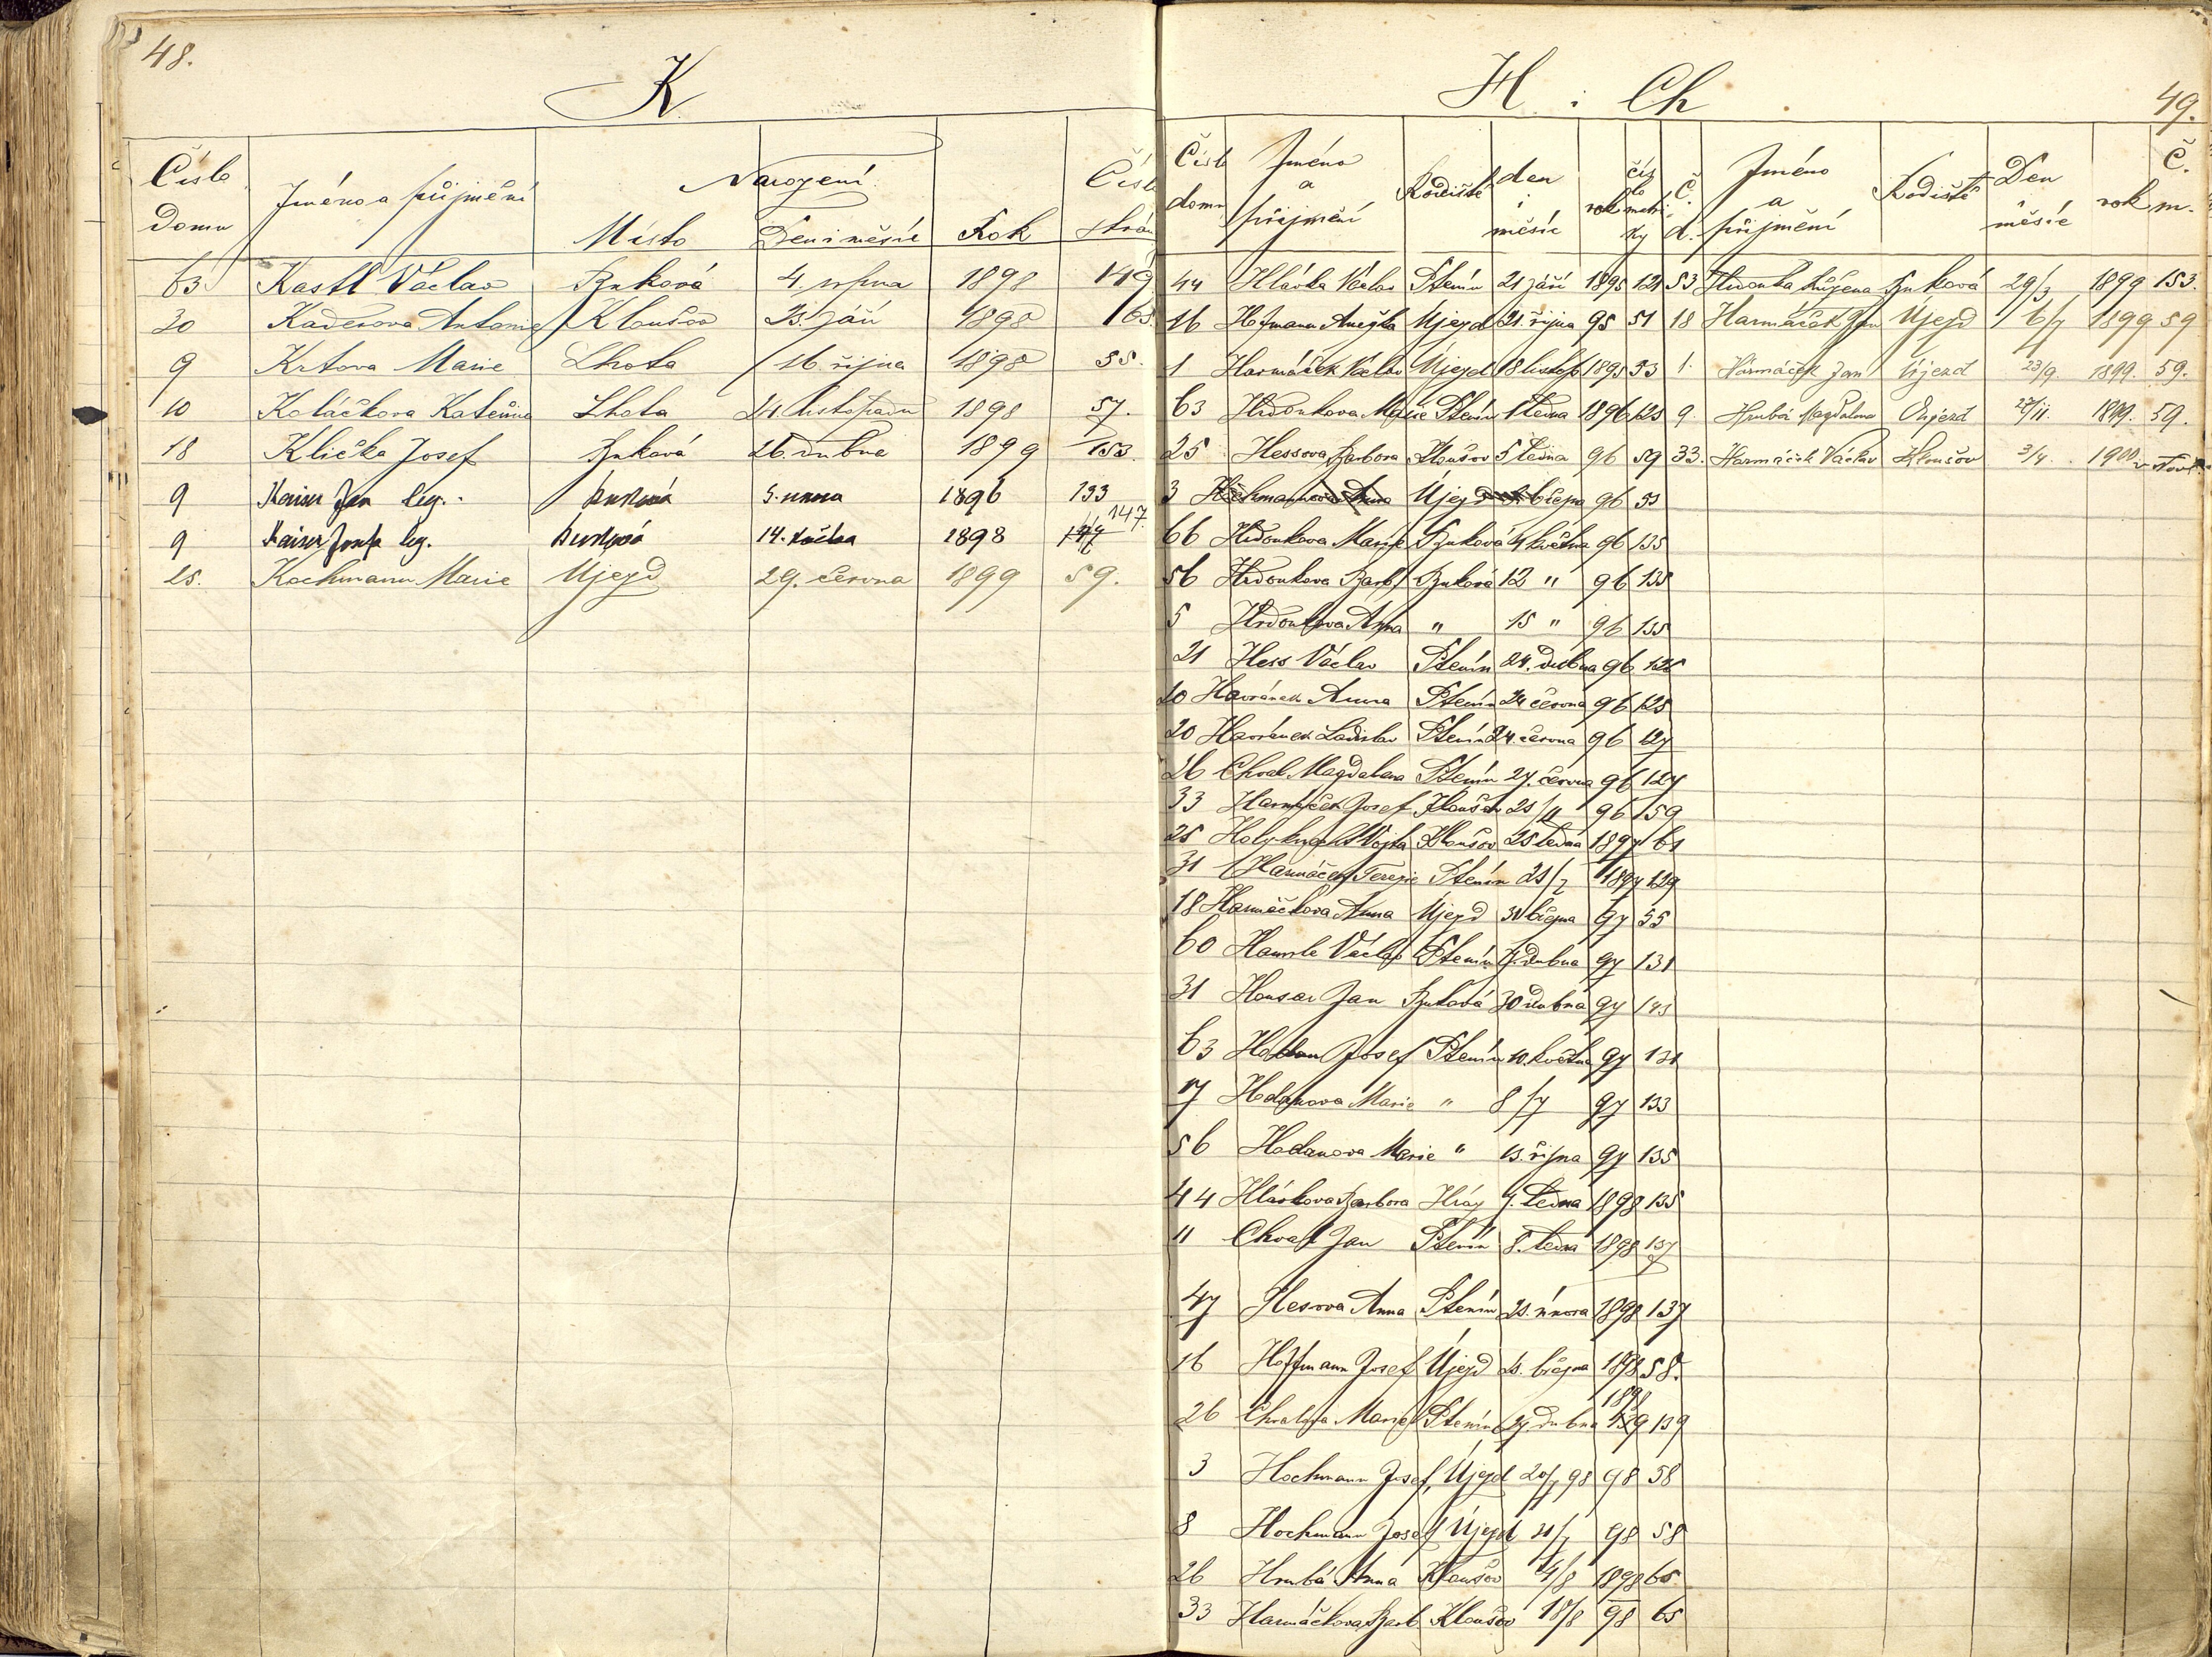 48.
K
Číslo Domu Jméno a přijmění Narození Místo Den i měsíc Rok Číslo strán
63 Kastl Václav Buková 4. srpna 1898 149
30 Kaderova Antonie Kloušov 23. září 1898 63.
9 Krtova Marie Lhota 16. října 1898 55.
10 Koláčkova Kateřina Lhota 24. listopadu 1898 57.
18 Klička Josef Buková 26. dubna 1899 153.
9 Kaiser Jan leg. Buková 5. února 1896 133
9 Kaiser Josefa leg. Buková 14. 1898 147.
25. Kochmann Marie Újezd 29. června 1899 59.
H i Ch
49.
Číslo domu Jméno a přijmění Rodiště den i měsíc rok číslo matriky
44 Hlávka Václav Ptenín 21 září 1895 121
16 Hofmann Anežka Újezd 21. října 95 51
1 Harmáček Václav Újezd 18 listop 1895 53
63 Hrdonkova Marie Ptenín 1 ledna 1896 123
25 Hessova Barbora Kloušov 5 ledna 96 59
3 Hochmannova Anna Újezd března 96 53
66 Hrdonkova Marie Buková 4 května 96 135
56 Hrdonkova Barb. Buková 12 " 96 135
5 Hrdonkova Anna " 15 " 96 135
21 Hess Václav Ptenín 24. dubna 96 125
20 Havránek Anna Ptenín 24 června 96 125
20 Havránek Ladislav Ptenín 24. června 96 127
26 Chval Magdalena Ptenín 27. června 96 127
33 Harmáček Josef Kloušov 25/11 96 159
25 Kloušov 25 ledna 1897 61
31 Harmáček Terezie Ptenín 21/2 1897 129
18 Harmáčkova Anna Újezd 31 března 97 55
60 Václav Ptenín 7. dubna 97 131
31 Housar Jan Buková 30 dubna 97 143
63 Hodan Josef Ptenín 10. května 97 131
17 Hodanova Marie " 8/7 97 133
56 Hodanova Marie " 13. října 97 135
44 Hlávkova Barbora Hráz 7. ledna 1898 135
11 Chval Jan Ptenín 8. ledna 1898 137
47 Hesova Anna Ptenín 21. února 1898 137
16 Hoffmann Josef Újezd 23. března 1898 58.
26 Chvalova Marie Ptenín 27. dubna 1898 139
3 Hochmann Josef, Újezd 20/7 98 98 58
8 Hochmann Josef Újezd 21/7 98 58
26 Hrubá Anna Kloušov 4/8 1898 65
33 Harmáčkova Barb. Kloušov 18/8 98 65
Č. d. Jméno a přijmění Rodiště Den měsíc rok Č. m.
53 Hrdonka Růžena Buková 29/3 1899 153.
18 Harmáček Jan Újezd 6/7 1899 59
1. Harmáček Jan Újezd 23/9. 1899. 59.
9. Hrubá Magdalena Oujezd 27/11. 1899. 59.
33. Harmáček Václav Kloušov 3/4. 1900